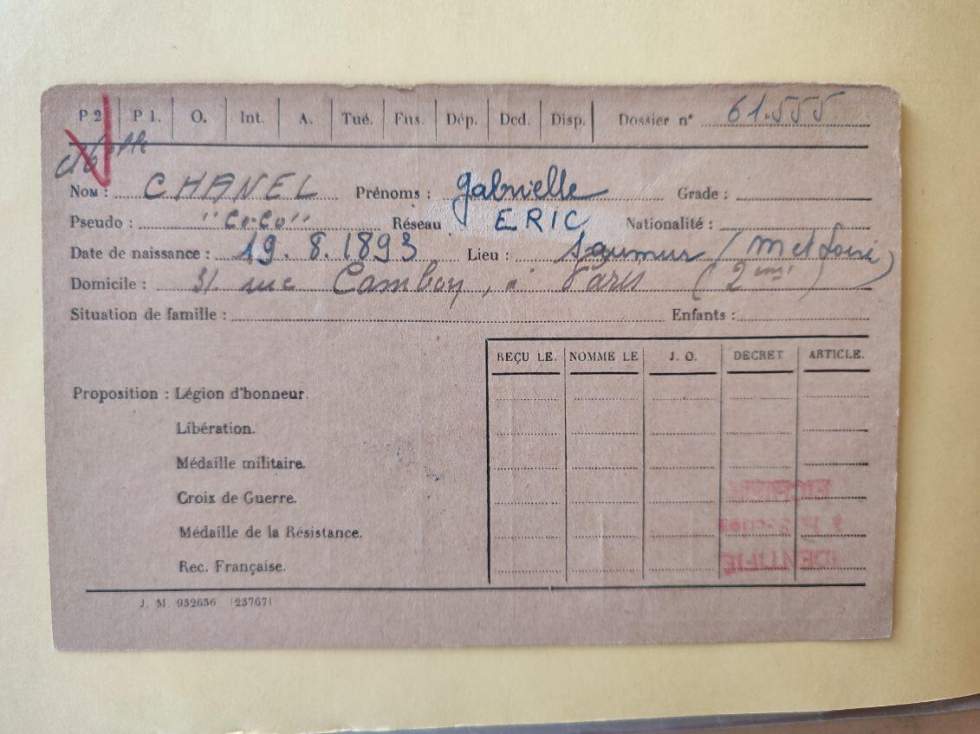 P2 P 1. O. Int. A. Tué. Fus. Dép. Dcd. Disp. Dossier n° 61.555
NOM : CHANEL Prénoms : Gabrielle Grade :
Pseudo : "Co-Co" Réseau ERIC Nationalité :
Date de naissance : 19. 8. 1893 Lieu : Saumur (M et Loire)
Domicile : 31 rue Cambon, à Paris (2me)
Situation de famille : Enfants :
REÇU LE. NOMME LE J. O. DECRET ARTICLE.
Proposition : Légion d'honneur.
Libération.
Médaille militaire.
Croix de Guerre.
Médaille de la Résistance.
Rec. Française.
IDENTIFIE
J. M. 032656 (23767)